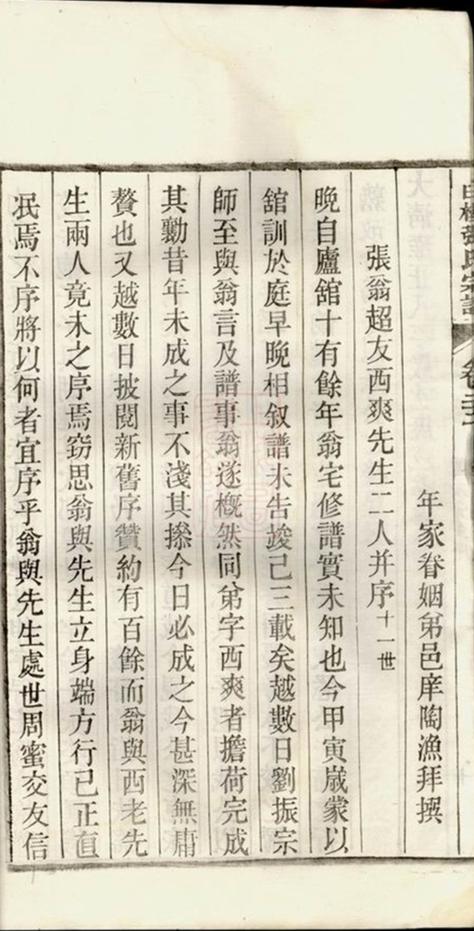 張氏宗譜
張翁超友西爽先生二人并序十一世
年家眷姻弟邑庠陶漁拜撰
晚自廬舘十有餘年翁宅修譜實未知也今甲寅歲蒙以
舘訓於庭早晚相叙譜未告竣已三載矣越數日劉振宗
師至與翁言及譜事翁遂槪然同弟字西爽者擔荷完成
其勷昔年未成之事不淺其搽今日必成之今甚深無庸
贅也又越數日披閱新舊序贊約有百餘而翁與西老先
生兩人竟未之序焉窃思翁與先生立身端方行已正直
冺焉不序將以何者宜序乎翁與先生處世周蜜交友信